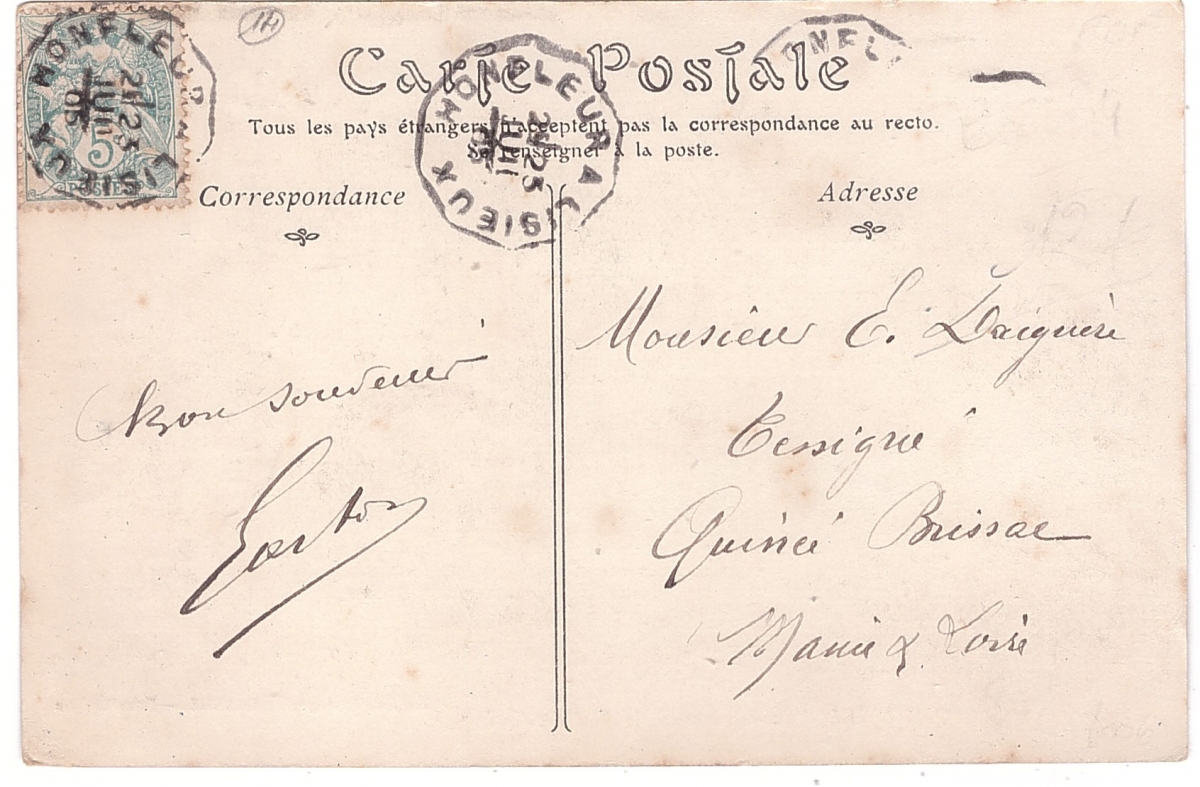 1H
Carte Postale
Tous les pays étrangers n'acceptent pas la correspondance au recto.
Se renseigner à la poste.
HONFLEUR A LISIEUX
25
JUIL
05
5
POSTES
HONFLEUR A LISIEUX
25
JUIL
05
ONFL
Correspondance
Adresse
Bon souvenir
Gaston
Monsieur E. Daiguère
Tessigné
Quincé Brissac
Maine & Loire